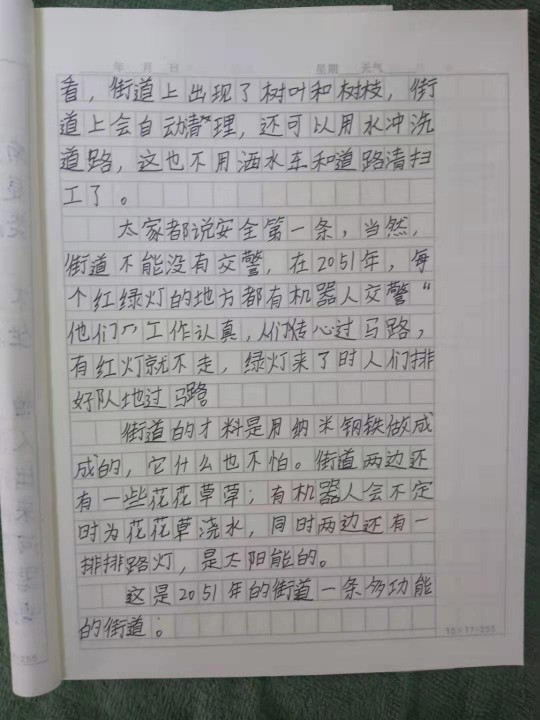 年 月 日 星期 天气
看，街道上出现了树叶和树枝，街
道上会自动清理，还可以用水冲洗
道路，这也不用洒水车和道路清扫
工了。
大家都说安全第一条，当然，
街道不能没有交警，在2051年，每
个红绿灯的地方都有机器人交警“
他们”工作认真，人们专心过马路，
有红灯就不走，绿灯来了时人们排
好队地过马路
街道的才料是用纳米钢铁做成
成的，它什么也不怕。街道两边还
有一些花花草草；有机器人会不定
时为花花草浇水，同时两边还有一
排排路灯，是太阳能的。
这是2051年的街道一条多功能
的街道；
15×17=255